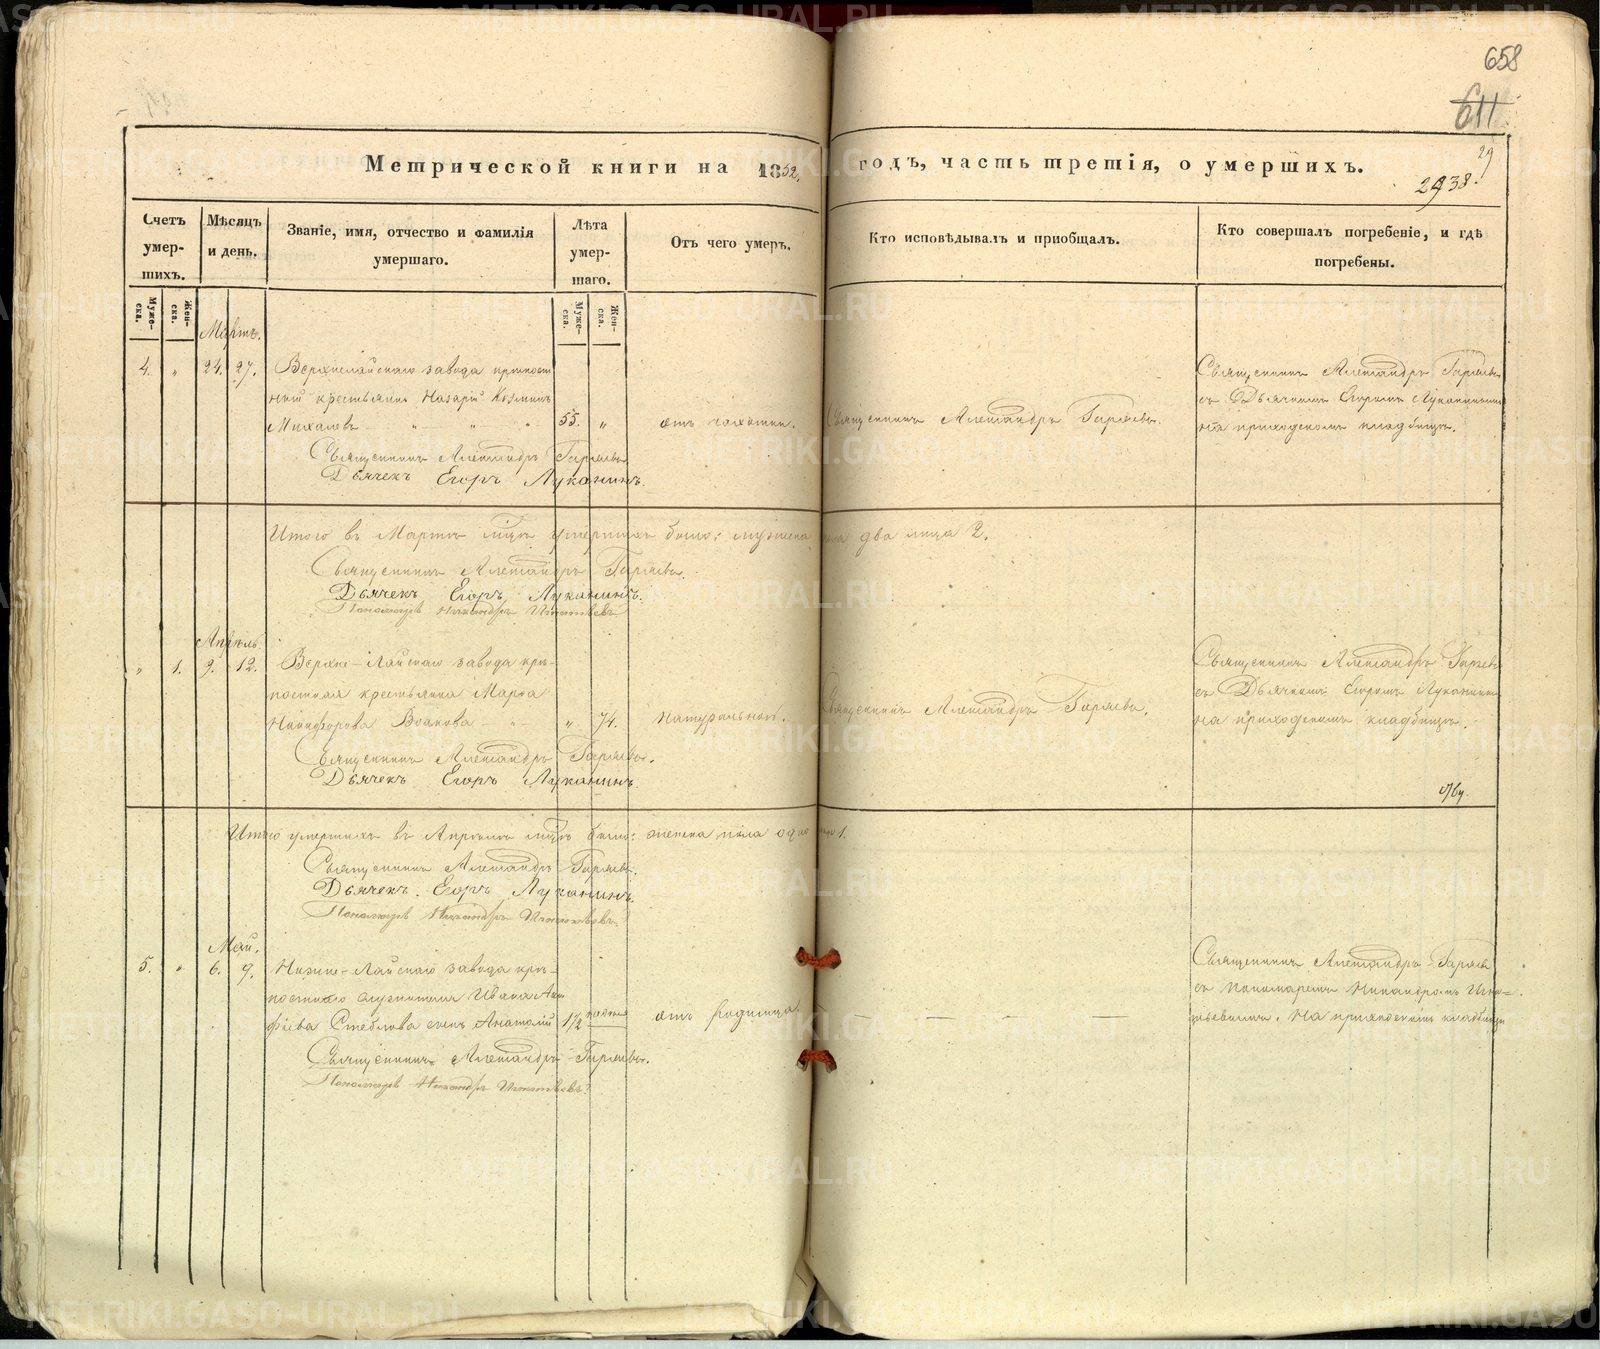 658
611
29
2938.
Метрической книги на 1852. годъ, часть третія, о умершихъ.
Счетъ умер-шихъ.
Мѣсяцъ и день.
Званіе, имя, отчество и фамилія умершаго.
Лѣта умер-шаго.
Отъ чего умеръ.
Кто исповѣдывалъ и приобщалъ.
Кто совершалъ погребеніе, и гдѣ погребены.
Муже-ска.
Жен-ска.
Муже-ска.
Жен-ска.
Мартъ.
4. " 24. 27. Верхнелайскаго завода крѣпост
ный крестьянинъ Назарій Козминъ
Михалевъ 55. " отъ чахотки. Священникъ Александръ Гаряевъ.
Священникъ Александръ Гаряевъ
съ Дьячкомъ Егоромъ Луканинымъ
на приходскомъ кладбищѣ.
Священникъ Александръ Гаряевъ
Дьячекъ Егоръ Луканинъ.
Итого въ Мартѣ мѣцѣ умершихъ было: мужеска пола два лица 2.
Священникъ Александръ Гаряевъ.
Дьячекъ Егоръ Луканинъ.
Пономарь Никандръ Игнатьевъ
Апрѣль.
" 1. 9. 12. Верхне-Лайскаго завода крѣ-
постная крестьянка Марѳа
Никифорова Волкова " 74. натуральной. Священникъ Александръ Гаряевъ.
Священникъ Александръ Гаряевъ
съ Дьячкомъ Егоромъ Луканинымъ
на приходскомъ кладбищѣ.
Священникъ Александръ Гаряевъ.
Дьячекъ Егоръ Луканинъ.
Итого умершихъ въ Апрѣлѣ мѣцѣ было: женска пола одно лице 1.
Священникъ Александръ Гаряевъ.
Дьячекъ. Егоръ Луканинъ.
Пономарь Никандръ Игнатьевъ.
Май.
5. " 6. 9. Нижне-Лайскаго завода крѣ-
постнаго служителя Ивана
Стеблова сынъ Анатолій 1/2 отъ родимца.
Священникъ Александръ Гаряевъ
съ пономаремъ Никандромъ Игна-
тьевымъ. На приходскомъ кладбищѣ
Священникъ Александръ Гаряевъ.
Пономарь Никандръ Игнатьевъ.
METRIKI.GASO-URAL.RU